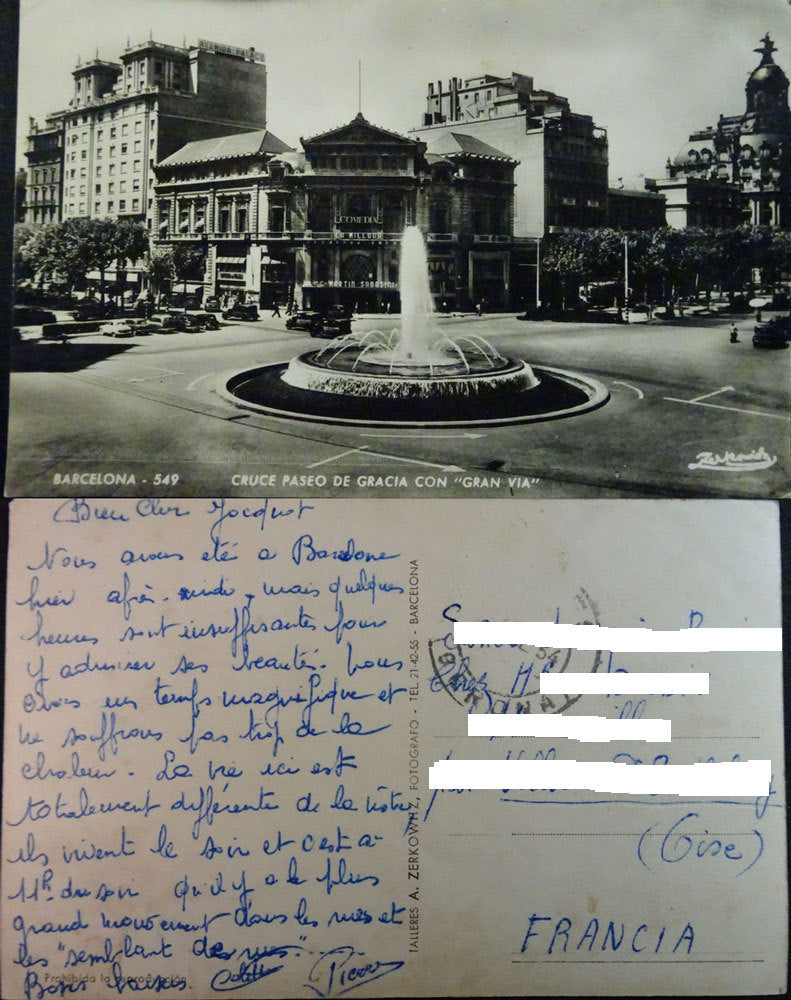 AVENIDA PALACE
COMEDIA
MARTIN
BARCELONA - 549 CRUCE PASEO DE GRACIA CON "GRAN VIA"
Zerkowitz
Bien Cher Jacquot
Nous avons été a Barcelone
hier après-midi, mais quelques
heures sont insuffisantes pour
y admirer ses beautés. Nous
avons un temps magnifique et
ne souffrons pas trop de la
chaleur. La vie ici est
totalement différente de la nôtre
ils vivent le soir et c'est a
11h. du soir qu'il y a le plus
grand mouvement dans les rues et
les "semblant
Bons baisers. Pierre
Prohibida la reproducción
TALLERES A. ZERKOWITZ, FOTOGRAFO - TEL. 21-42-55 - BARCELONA
54
Chez
(Oise)
FRANCIA